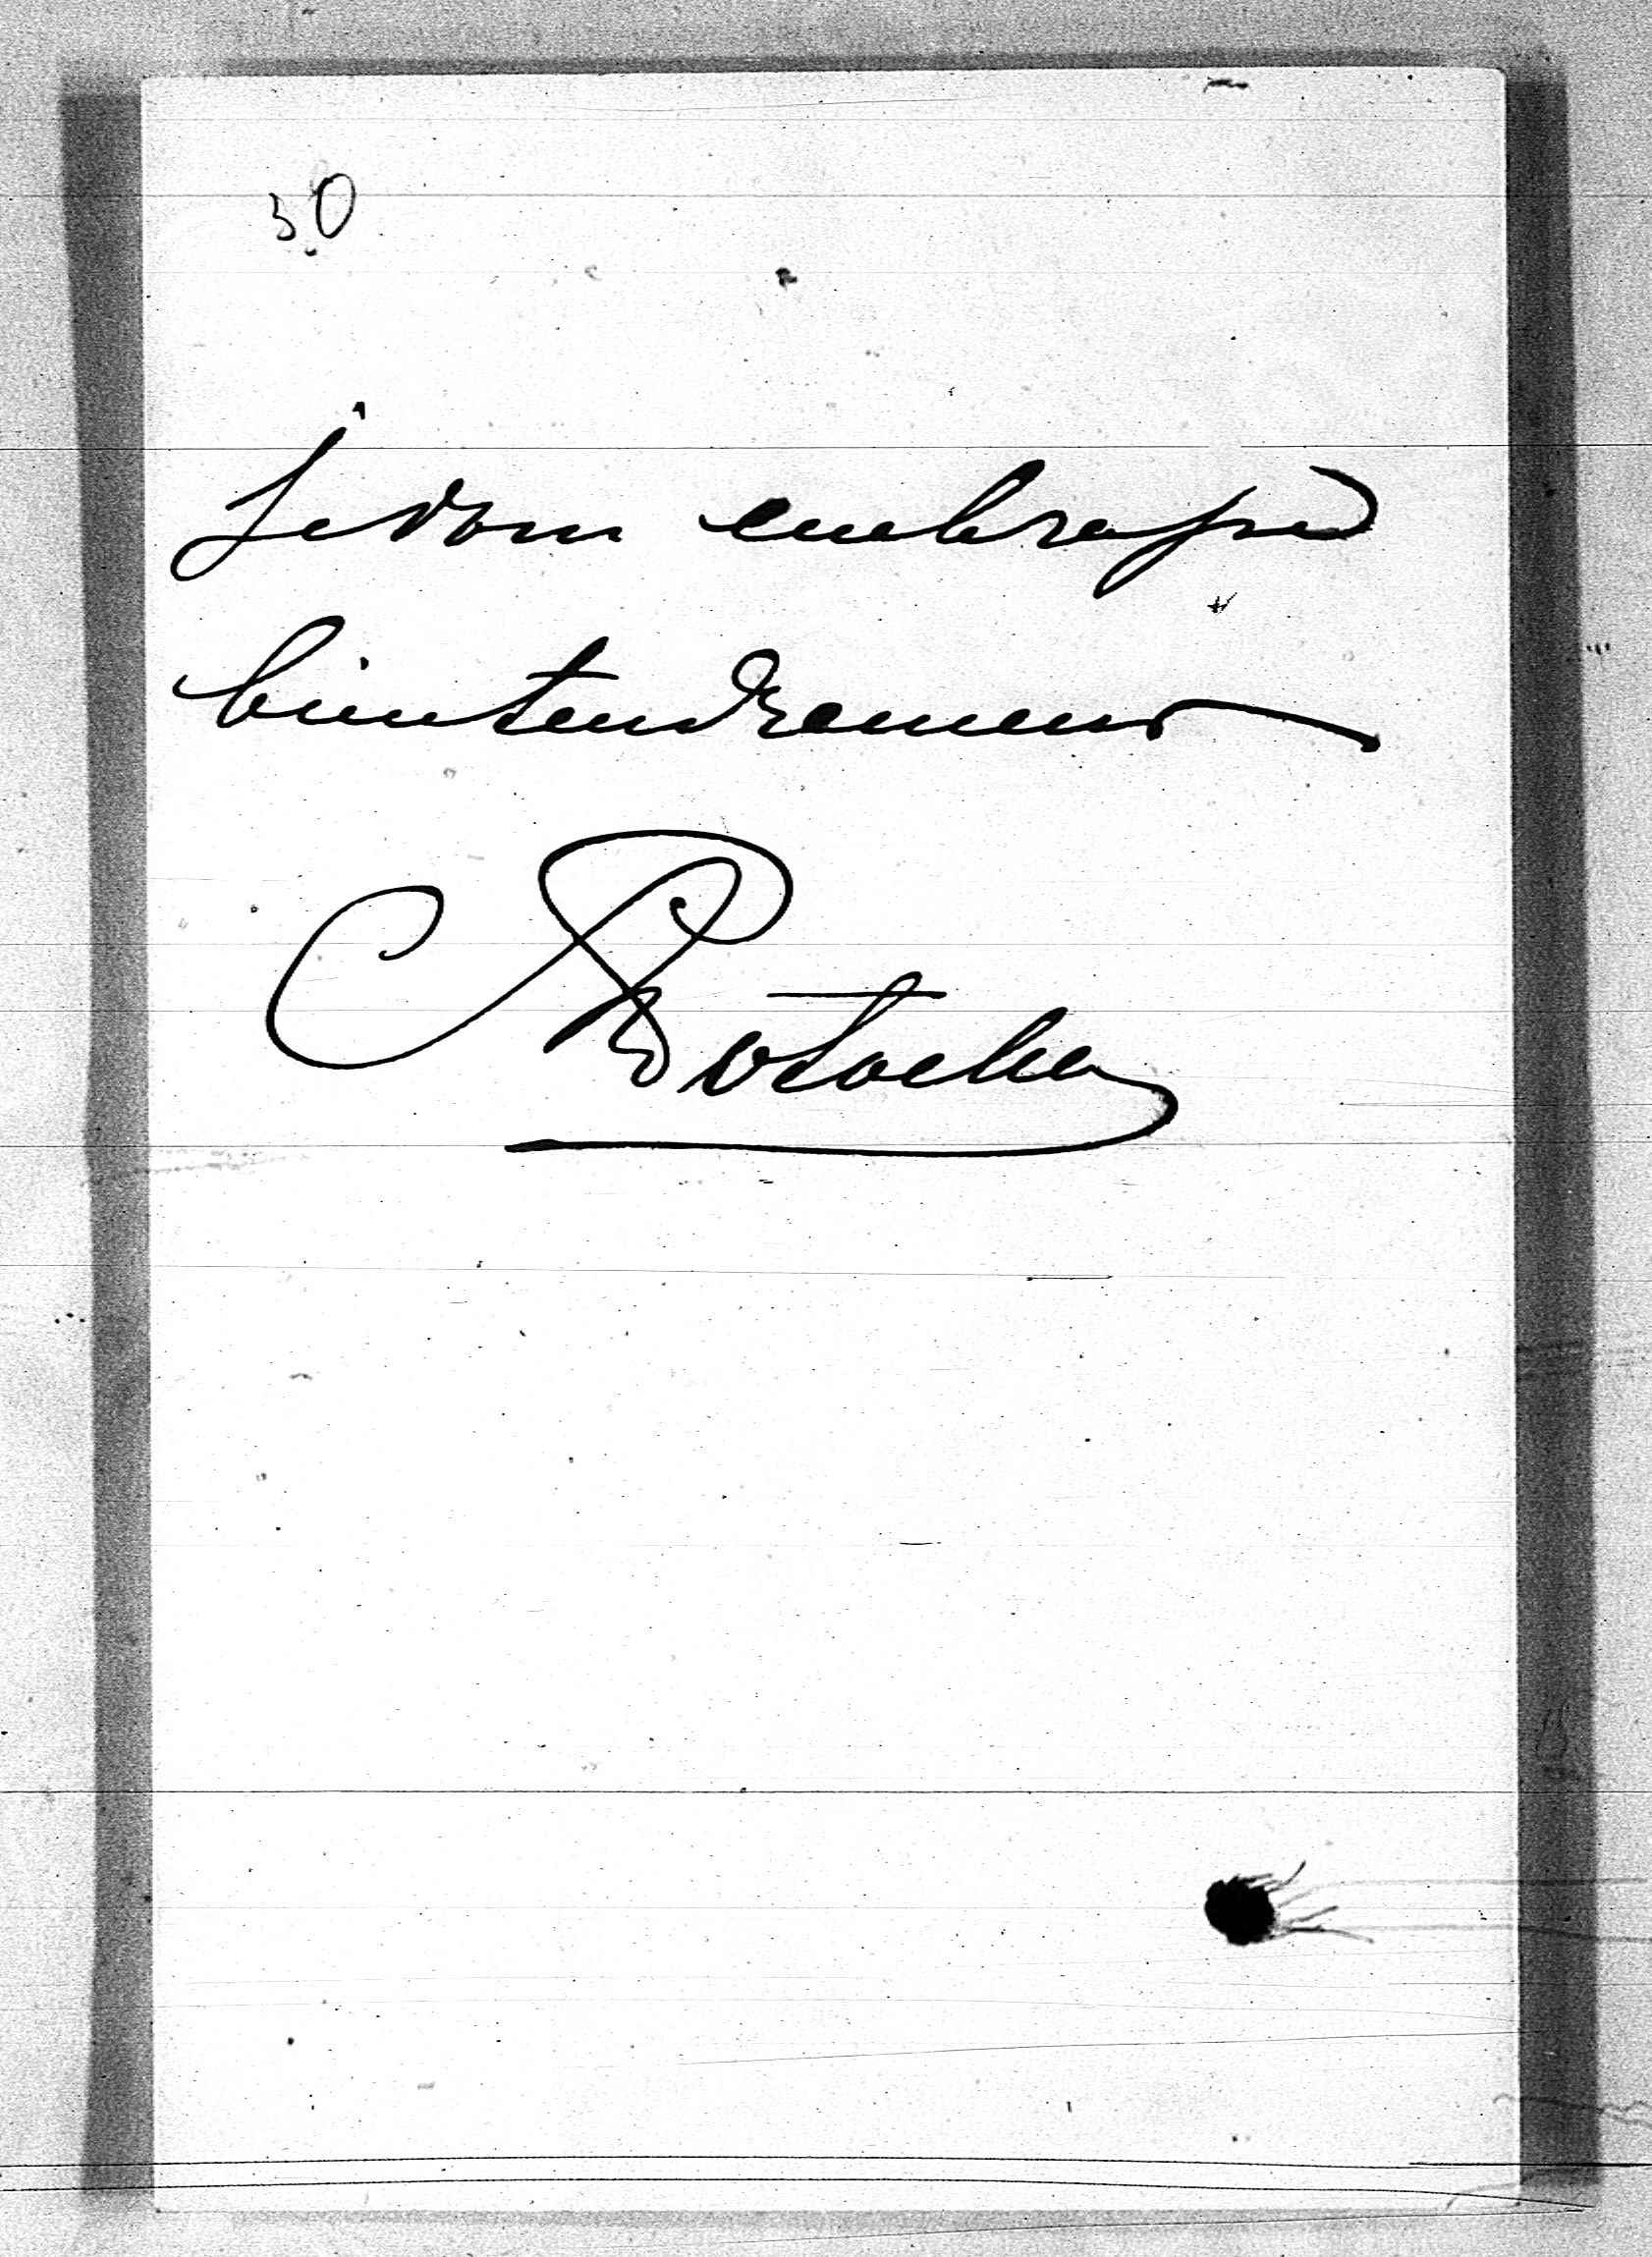 30
je vous embrasse
bien tendrement
C Potocka